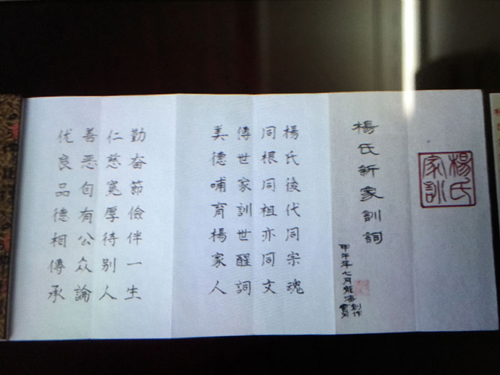 楊氏家訓
楊氏新家訓詞
甲午年七月
楊氏後代同宗魂
同根同祖亦同文
傳世家訓世醒詞
美德哺育楊家人
勤奋節儉伴一生
仁慈寬厚待别人
善恶自有公众論
优良品德相傳承